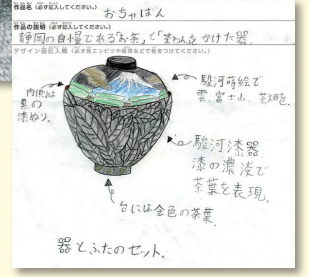 作品名（必ず記入してください。） おちゃばん
作品の説明（必ず記入してください。）
静岡の自慢である「お茶」と「茶わん」をかけた器。
デザイン画記入欄（必ず色エンピツや絵具などで色をつけてください。）
内側は
黒の
漆ぬり。
駿河蒔絵で
雲、富士山、茶畑を。
駿河漆器
漆の濃淡で
茶葉を表現。
台には金色の茶葉。
器とふたのセット。